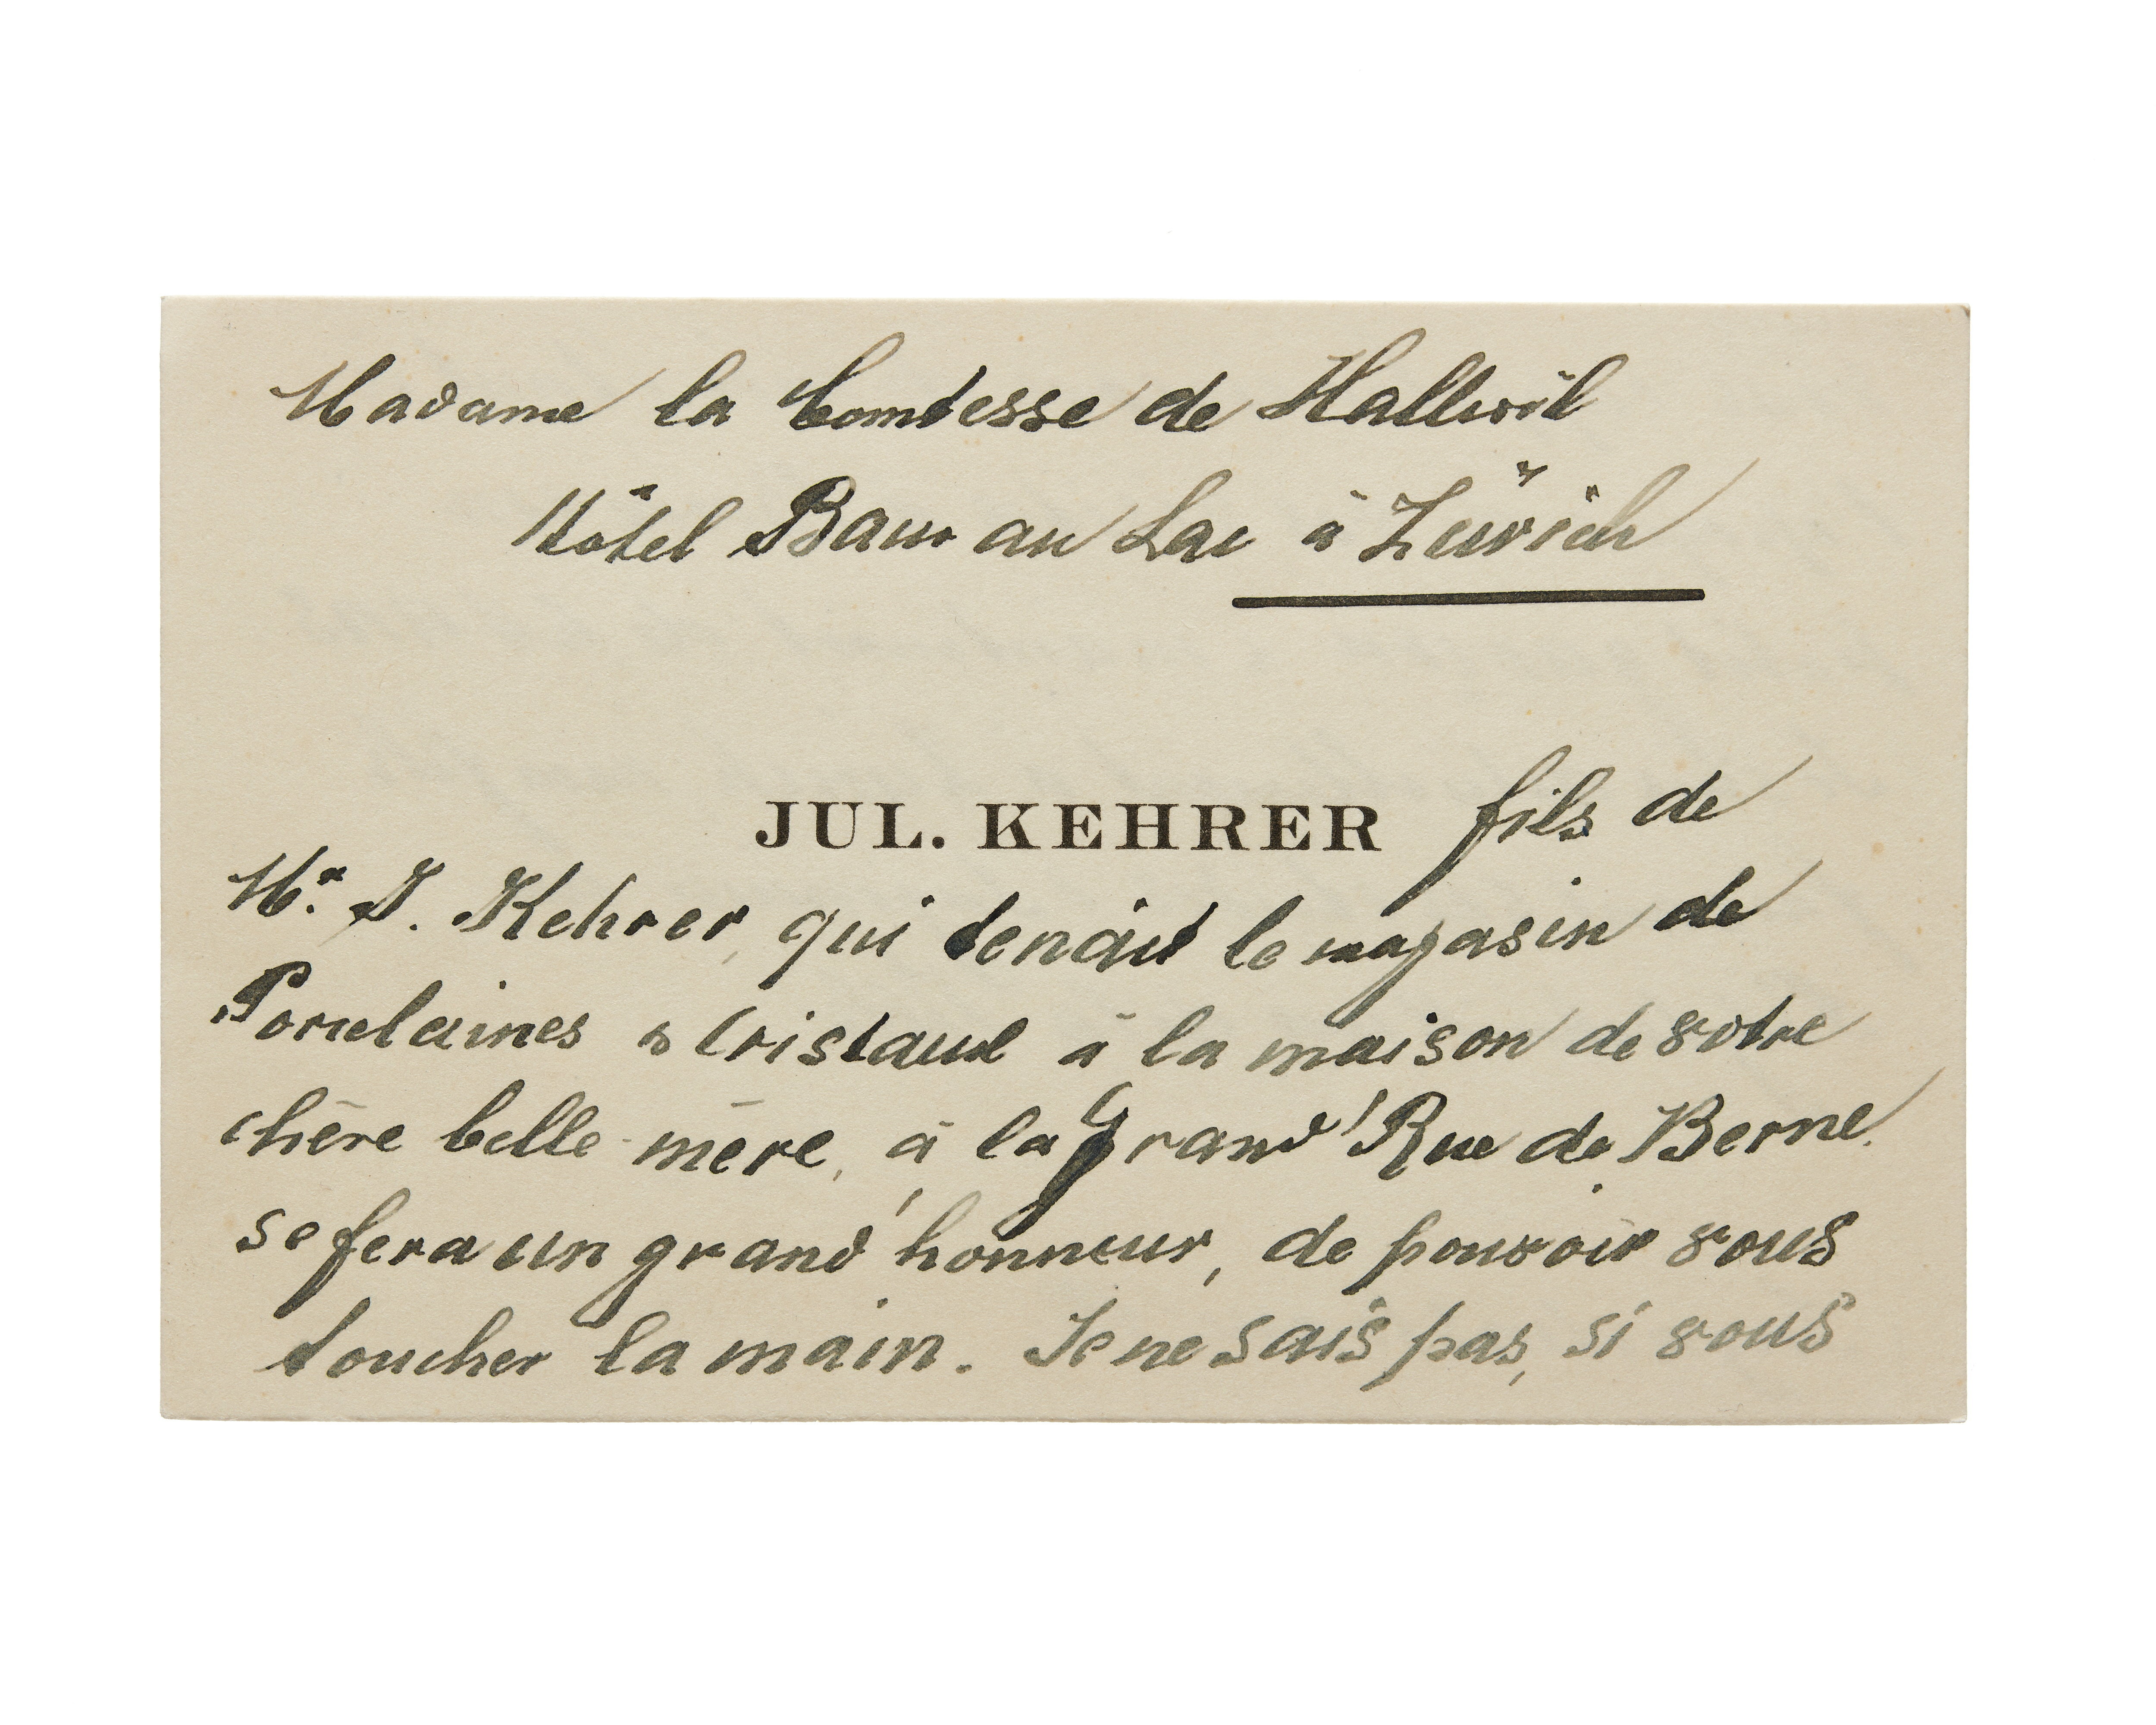 Madame la Comtesse de Hallwil
Hôtel Baur au Lac à Zürich
JUL. KEHRER fils de
Mr. J. Kehrer, qui tenait le magasin de
Porcelaines & Cristaux à la maison de votre
chère belle-mère, à la Grand'Rue de Berne.
se fera un grand'honneur, de pouvoir vous
toucher la main. Je ne sais pas, si vous